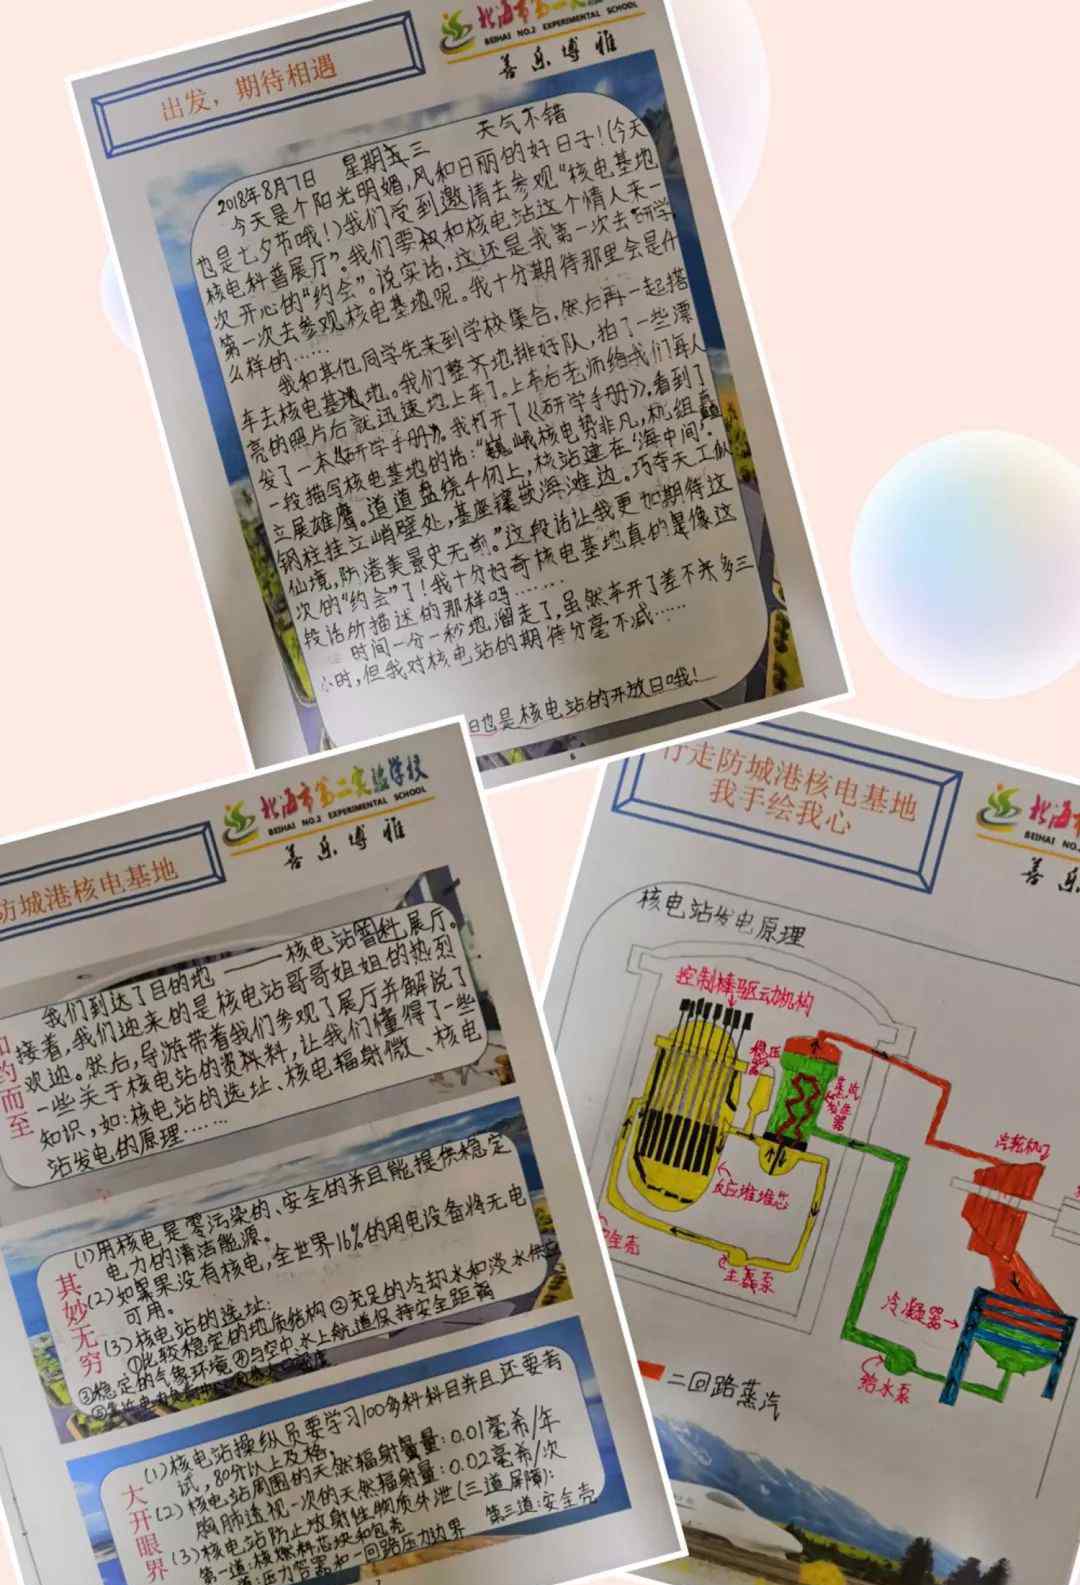 出发，期待相遇
北海市第二
BEIHAI NO.2 EXPERIMENTAL SCHOOL
善乐博雅
2018年8月7日 星期三 天气不错
今天是个阳光明媚，风和日丽的好日子！（今天
也是七夕节哦！）我们受到邀请去参观“核电基地
核电科普展厅”。我们要和核电站这个情人来一
次开心的“约会”。说实话，这还是我第一次去“研学
第一次去参观核电基地呢。我十分期待那里会是什
么样的……
我和其他同学先来到学校集合，然后再一起搭
车去核电基地。我们整齐地排好队，拍了一些漂
亮的照片后就迅速地上车了。上车后老师给我们每人
发了一本《研学手册》。我打开了《研学手册》，看到了
一段描写核电基地的话：“巍峨核电势非凡，机组矗
立展雄鹰。道道盘绕千仞上，核站建在‘海中间’。
钢柱挂立峭壁处，基座镶嵌海滩边。巧夺天工似
仙境，防港美景史无前。”这段话让我更加期待这
次的“约会”了！我十分好奇核电基地真的是像这
段话所描述的那样吗……
时间一分一秒地溜走了，虽然车开了差不来多三
小时，但我对核电站的期待分毫不减……
日也是核电站的开放日哦！
防城港核电基地
北海市第二实验学校
BEIHAI NO.2 EXPERIMENTAL SCHOOL
善乐博雅
约而至
我们到达了目的地——核电站普科展厅。
接着，我们迎来的是核电站哥哥姐姐的热烈
欢迎。然后，导游带着我们参观了展厅并解说了
一些关于核电站的资料料，让我们懂得了一些
知识，如：核电站的选址、核电辐射微、核电
站发电的原理……
其妙无穷
(1)用核电是零污染的、安全的并且能提供稳定
电力的清洁能源。
(2)如果没有核电，全世界16%的用电设备将无电
可用。
(3)核电站的选址：
①比较稳定的地质结构 ②充足的冷却水和淡水供应
③稳定的气象环境 ④与空中、水上航道保持安全距离
大开眼界
(1)核电站操纵员要学习100多科科目并且还要考
试，80分以上及格。
(2)核电站周围的天然辐射量：0.01毫希/年
胸肺透视一次的天然辐射量：0.02毫希/次
(3)核电站防止放射性物质外泄（三道屏障）：
第一道：核燃料芯块和包壳 第三道：安全壳
道：压力容器和一回路压力边界
行走防城港核电基地
我手绘我心
北海
BEIHAI NO.
善
核电站发电原理
控制棒驱动机构
稳压器
蒸汽发生器
汽轮机
反应堆堆芯
安全壳
主泵
冷凝器
给水泵
二回路蒸汽